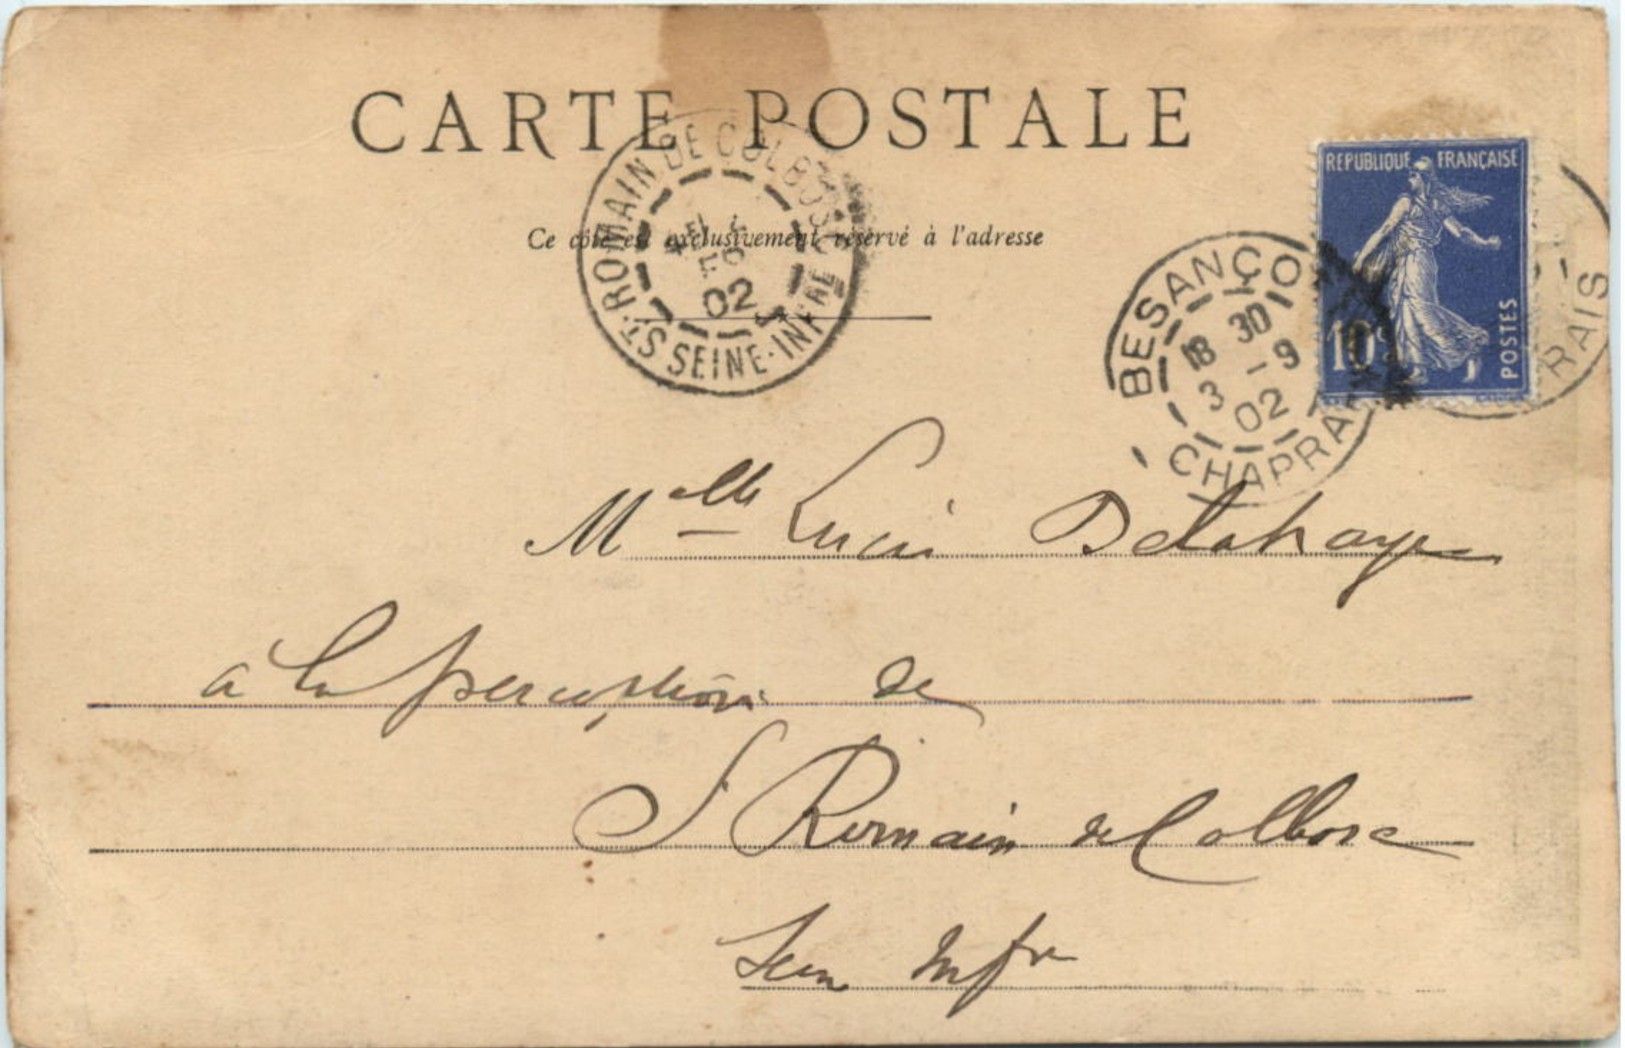 CARTE POSTALE
Ce côté est exclusivement réservé à l'adresse
ST ROMAIN DE COLBOSC
02
SEINE-INFRE
REPUBLIQUE FRANÇAISE
10c
POSTES
BESANÇON
18 30
3 - 9
02
CHAPRAIS
RAIS
Melle Lucie Delahaye
a la perception de
St Romain de Colbosc
Seine Infre